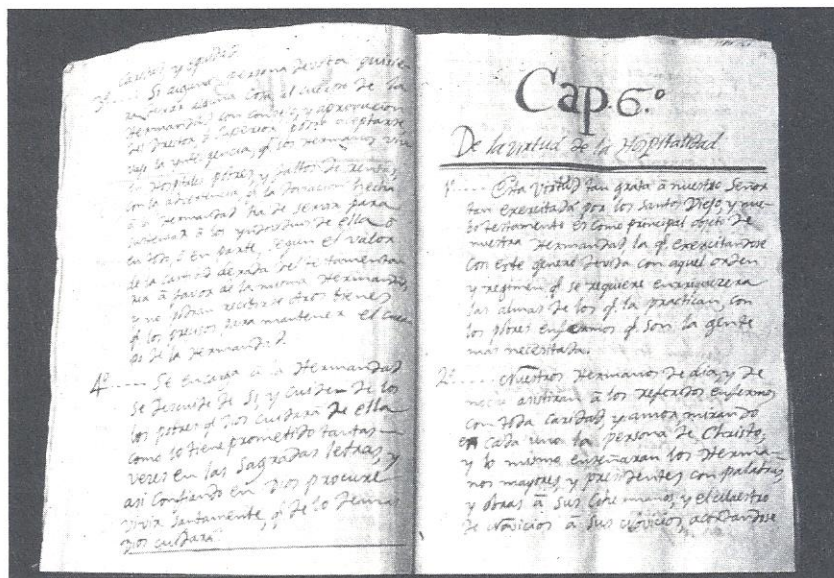 caridad, y equidad.
3º..... Si alguna persona devota quisie-
ra dexar alguna cosa al cuerpo de la
Hermandad con consejo, y aprovacion
del Director, ò Superior podrá aceptarse
vajo la inteligencia, q̃. los Hermanos viven
en Hospitales pobres, y faltos de rentas,
con la advertencia, q̃. la donacion hecha
à la Hermandad ha de servir para
sustentar à los yndividuos de ella ò
en todo, ò en parte, segun el valor
de la cantidad dexada del testamentar
à favor de la misma Hermandad,
y no podran recibirse otros bienes
q̃. los precisos para mantener el cuer-
po de la Hermandad.
4º..... Se encarga à la Hermandad
se descuide de si, y cuide de los
los pobres q̃. Dios cuidará de ella
como lo tiene prometido tantas
veces en las Sagradas letras, y
asi confiando en Dios procure
vivir santamente, q̃. de lo demas
Dios cuidará.
Cap. 6.º
De la virtud de la Hospitalidad
1º..... Esta virtud tan grata à nuestro Señor
tan exercitada por los Santos Viejo, y nue-
bo testamento es como principal objeto de
nuestra Hermandad la q̃. exercitandose
con este genero de vida con aquel orden
y regimen q̃. se requiere enriquezera
las almas de los q̃. la practican, con
los pobres enfermos q̃. son la gente
mas necesitada.
2º..... Nuestros Hermanos de dia, y de
noche asistiran à los referidos enfermos
con toda caridad, y amor mirando
en cada uno la persona de Christo,
y lo mismo enseñaran los Herma-
nos mayores, y presidentes con palabras,
y obras à sus Hermanos, y el Maestro
de Novicios à sus Novicios, acordandose